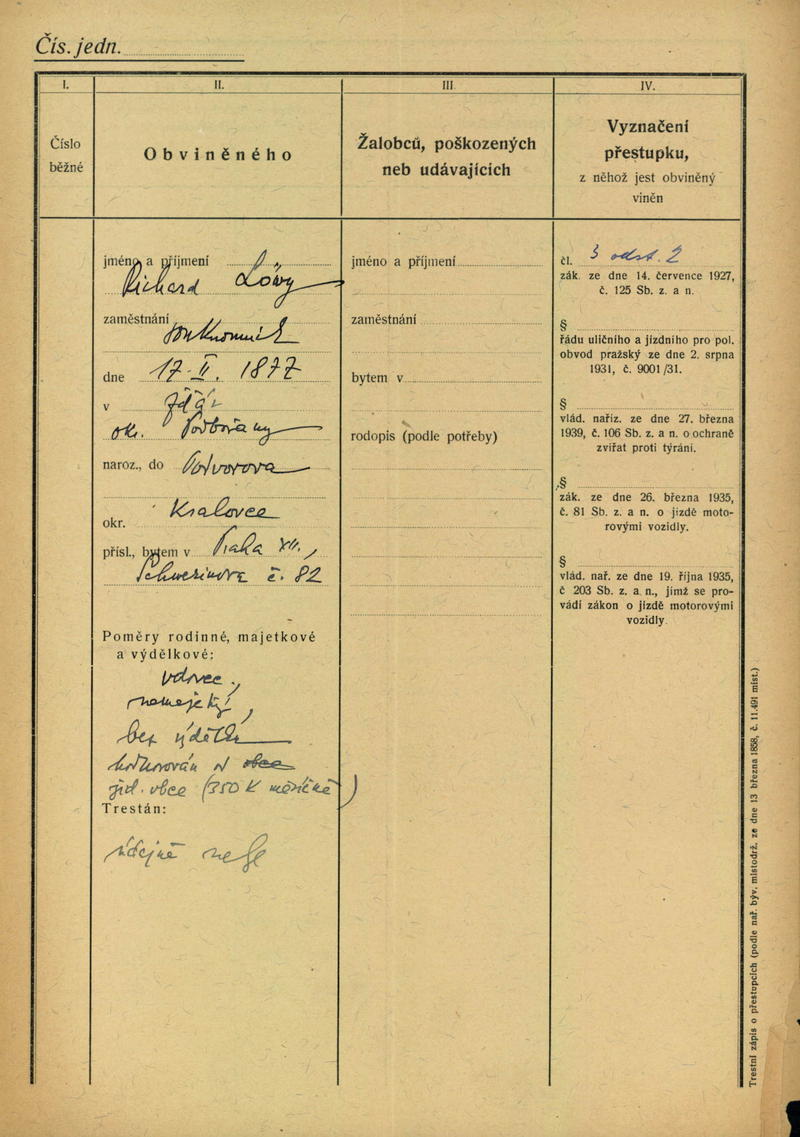 Čís. jedn.
I.
Číslo
běžné
II.
Obviněného
III
Žalobců, poškozených
neb udávajících
IV.
Vyznačení
přestupku,
z něhož jest obviněný
viněn
jméno a příjmení
Richard Löwy
zaměstnání
dne 17. II. 1877
v
ok.
naroz., do
okr. Kralovce
přísl., bytem v Praha VII.,
č. 82
Poměry rodinné, majetkové
a výdělkové:
vdovec,
nemajetký,
bez výdělku
podporován
žid. obce (750 K měsíčně)
Trestán:
údajně ne
jméno a příjmení
zaměstnání
bytem v
rodopis (podle potřeby)
čl. 3 odst. 2
zák. ze dne 14. července 1927,
č. 125 Sb. z. a n.
§
řádu uličního a jízdního pro pol.
obvod pražský ze dne 2. srpna
1931, č. 9001/31.
§
vlád. naříz. ze dne 27. března
1939, č. 106 Sb. z. a n. o ochraně
zvířat proti týrání.
§
zák. ze dne 26. března 1935,
č. 81 Sb. z. a n. o jízdě moto-
rovými vozidly.
§
vlád. nař. ze dne 19. října 1935,
č 203 Sb. z. a. n., jímž se pro-
vádí zákon o jízdě motorovými
vozidly.
Trestní zápis o přestupcích (podle nař. býv. místodrž. ze dne 13 března 1858, č. 11.491 míst.)